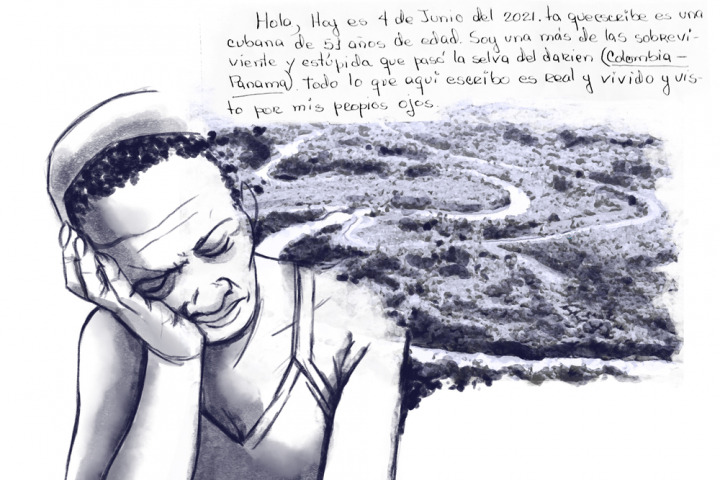 Hola, Hoy es 4 de Junio del 2021. la que escribe es una
cubana de 51 años de edad. Soy una más de las sobrevi-
viente y estúpida que pasó la selva del darien (Colombia -
Panama). todo lo que aqui escribo es real y vivido y vis-
to por mis propios ojos.